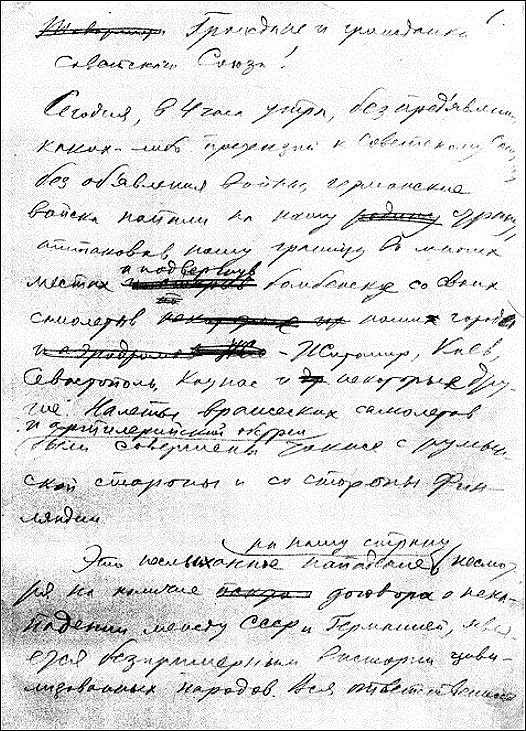 1.
Граждане и гражданки
Советского Союза!
Сегодня, в 4 часа утра, без предъявления
каких-либо претензий к Советскому Союзу
без объявления войны, германские
войска напали на нашу родину страну,
атаковав нашу границу во многих
и подвергнув
местах бомбежке со своих
самолетов наши города
- Житомир, Киев,
Севастополь, Каунас и некоторые дру-
гие. Налеты вражеских самолетов
и артиллерийский обстрел
были совершены также с румын-
ской стороны и со стороны Фин-
ляндии
на нашу страну
Это неслыханное нападение, несмот-
ря на наличие договора о нена-
падении между СССР и Германией, явля-
ется безпримерным в истории циви-
лизованных народов. Вся ответственность